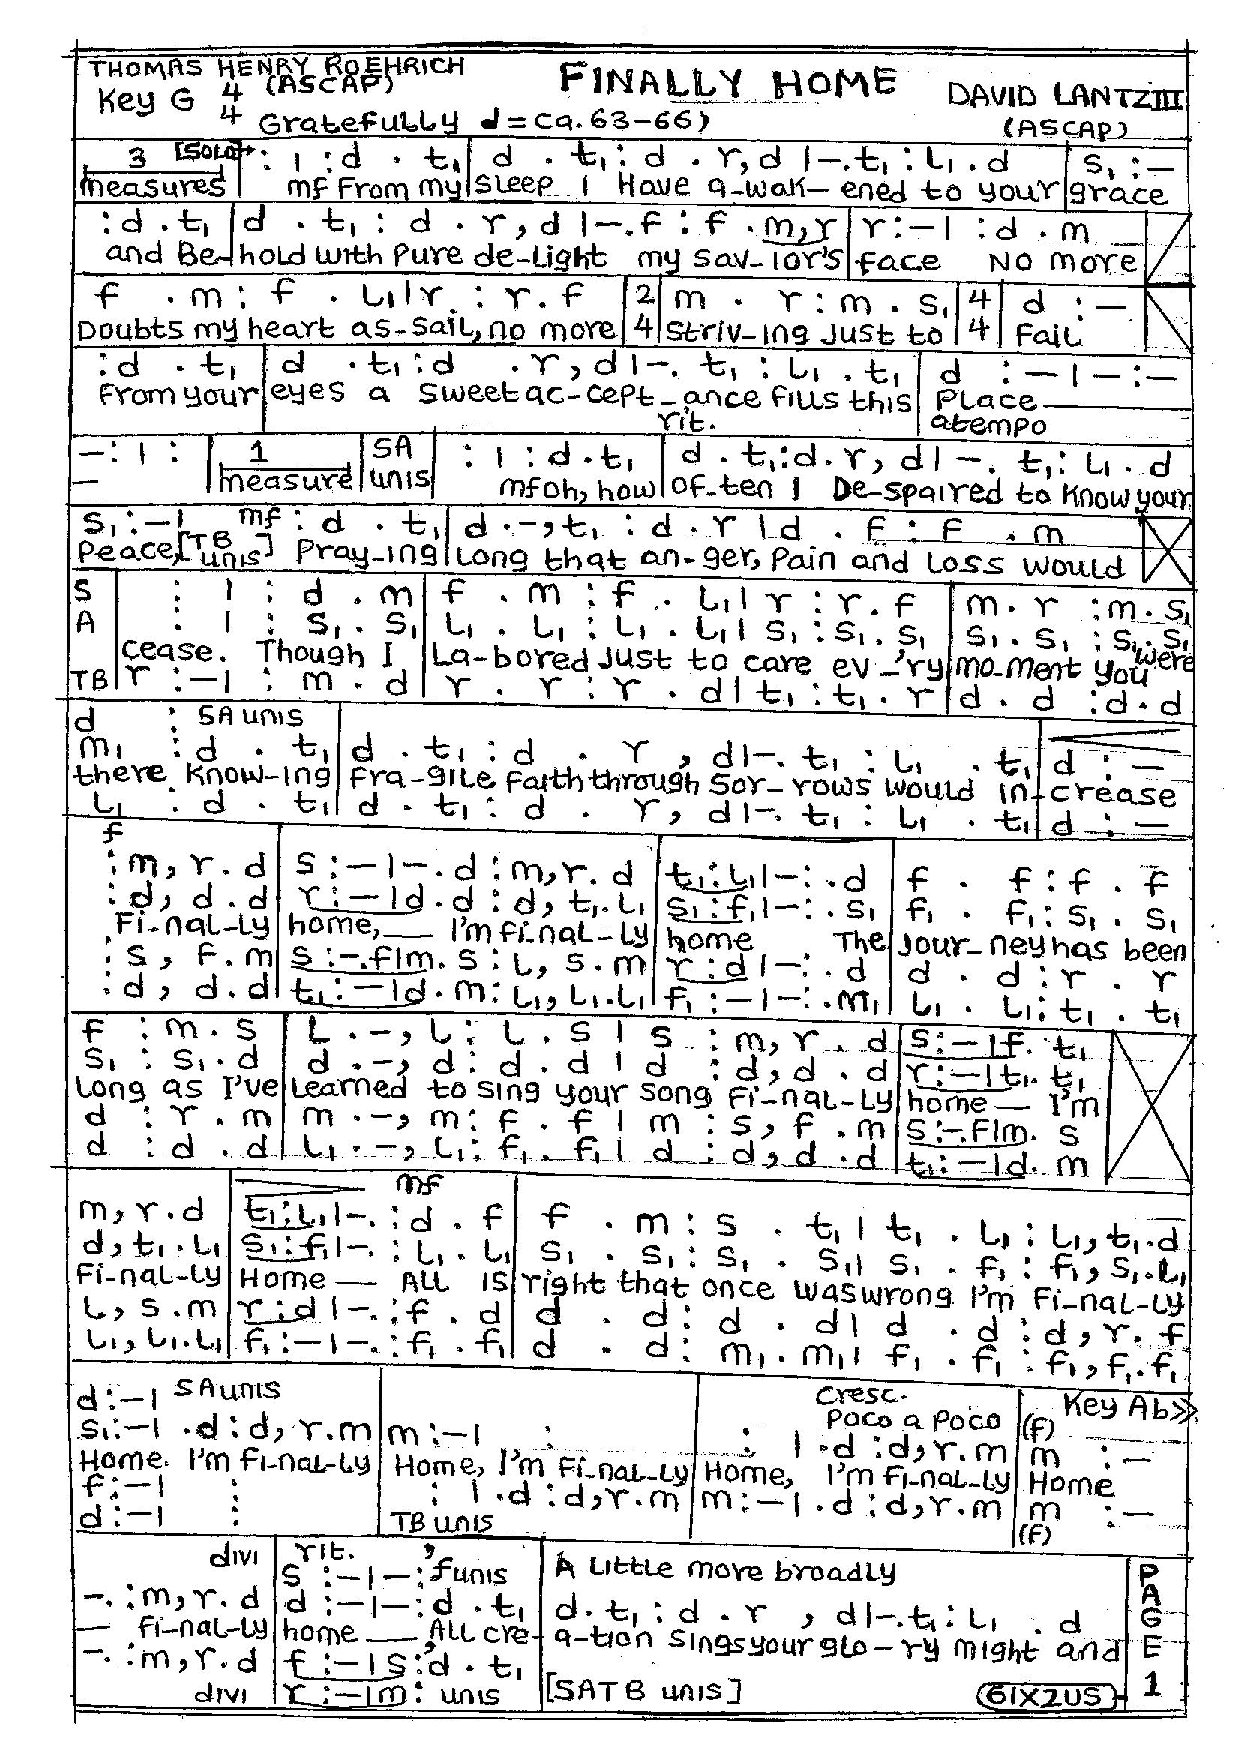 THOMAS HENRY ROEHRICH
(ASCAP)
FINALLY HOME
DAVID LANTZ III
(ASCAP)
Key G 4
4 Gratefully d=ca.63-66)
3 [SOLO→ : | : d . t₁ | d . t₁ : d . r, d |-. t₁ : L₁ . d | s₁ : -
measures mf From my sleep I Have a-wak-ened to your grace
: d . t₁ | d . t₁ : d . r, d |-. f : f . m, r | r : - | : d . m
and Be-hold with Pure de-light my sav-ior's face No more
f . m : f . L₁ | r : r . f | 2 | m . r : m . s₁ | 4 | d : -
Doubts my heart as-sail, no more 4 striv-ing just to 4 Fail
: d . t₁ | d . t₁ : d . r, d |-. t₁ : L₁ . t₁ | d : - | - : -
From your eyes a sweet ac-cept-ance fills this Place
rit. atempo
- : | : | 1 | SA : | : d . t₁ | d . t₁ : d . r, d |-. t₁ : L₁ . d
measure unis mf oh, how of-ten I De-spaired to know your
s₁ : - | mf : d . t₁ | d . -, t₁ : d . r | d . f : f . m
Peace, [TB unis] Pray-ing Long that an-ger, Pain and Loss would
S : | : d . m | f . m : f . L₁ | r : r . f | m . r : m . s₁
A : | : s₁ . s₁ | L₁ . L₁ : L₁ . L₁ | s₁ : s₁ . s₁ | s₁ . s₁ : s₁ . s₁
cease. Though I La-bored just to care ev-'ry mo-ment you were
TB r : - | : m . d | r . r : r . d | t₁ : t₁ . r | d . d : d . d
d : SA unis
m₁ : d . t₁ | d . t₁ : d . r, d |-. t₁ : L₁ . t₁ | d : -
there know-ing fra-gile faith through sor-rows would in-crease
L₁ : d . t₁ | d . t₁ : d . r, d |-. t₁ : L₁ . t₁ | d : -
f
: m, r . d | s : - | -. d : m, r . d | t₁ : L₁ | - : . d | f . f : f . f
: d, d . d | r : - | d . d : d, t₁ . L₁ | s₁ : f₁ | - : . s₁ | f₁ . f₁ : s₁ . s₁
Fi-nal-ly home, I'm fi-nal-ly home The Jour-ney has been
: s, f . m | s : -. f | m . s : L, s . m | r : d | - : . d | d . d : r . r
: d, d . d | t₁ : - | d . m : L₁, L₁ . L₁ | f₁ : - | - : . m₁ | L₁ . L₁ : t₁ . t₁
f : m . s | L . -, L : L . s | s : m, r . d | s : - | f . t₁
s₁ : s₁ . d | d . -, d : d . d | d : d, d . d | r : - | t₁ . t₁
Long as I've Learned to sing your song fi-nal-ly home I'm
d : r . m | m . -, m : f . f | m : s, f . m | s : -. f | m . s
d : d . d | L₁ . -, L₁ : f₁ . f₁ | d : d, d . d | t₁ : - | d . m
mf
m, r . d | t₁ : L₁ | -. : d . f | f . m : s . t₁ | t₁ . L₁ : L₁, t₁ . d
d, t₁ . L₁ | s₁ : f₁ | -. : L₁ . L₁ | s₁ . s₁ : s₁ . s₁ | s₁ . f₁ : f₁, s₁ . L₁
Fi-nal-ly Home ALL IS right that once was wrong I'm Fi-nal-ly
L, s . m | r : d | -. : f . d | d . d : d . d | d . d : d, r . f
L₁, L₁ . L₁ | f₁ : - | -. : f₁ . f₁ | d . d : m₁ . m₁ | f₁ . f₁ : f₁, f₁ . f₁
d : - | SA unis Cresc. Key Ab>>
s₁ : - | . d : d, r . m | m : - | : Poco a Poco (f)
: | . d : d, r . m | m : -
Home. I'm fi-nal-ly Home, I'm fi-nal-ly Home, I'm fi-nal-ly Home
f : - | : : | . d : d, r . m | m : - | . d : d, r . m | m : -
d : - | : TB unis (f)
divi rit. , A Little more broadly
s : - | - : f unis
-. : m, r . d | d : - | - : d . t₁ | d . t₁ : d . r, d |-. t₁ : L₁ . d
fi-nal-ly home, ALL cre-a-tion sings your glo-ry might and
-. : m, r . d | f : - | s : d . t₁
divi r : - | m : unis [SATB unis] 61X2US
PAGE 1